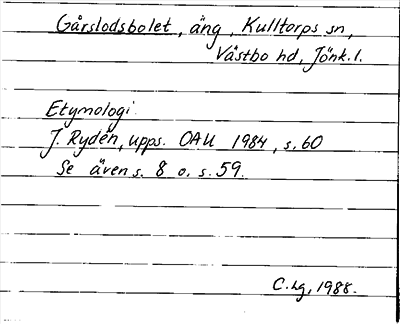 Gårslodsbolet, äng, Kulltorps sn,
Västbo hd, Jönk. l.
Etymologi
J. Rydén, upps. OAU 1984, s. 60
Se även s. 8 o. s. 59.
C. Lg, 1988.